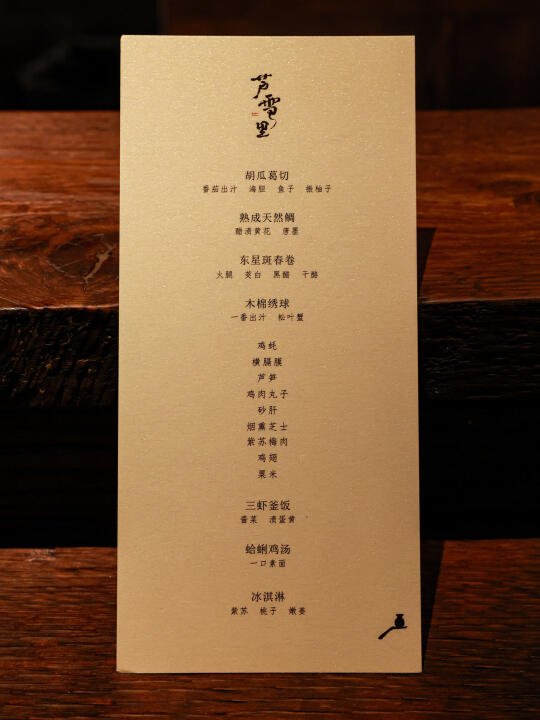 芦雪里
胡瓜葛切
番茄出汁 海胆 鱼子 振柚子
熟成天然鲷
醋渍黄花 唐墨
东星斑春卷
火腿 茭白 黑醋 干酪
木棉绣球
一番出汁 松叶蟹
鸡蚝
横膈膜
芦笋
鸡肉丸子
砂肝
烟熏芝士
紫苏梅肉
鸡翅
粟米
三虾釜饭
酱菜 渍蛋黄
蛤蜊鸡汤
一口素面
冰淇淋
紫苏 桃子 嫩姜